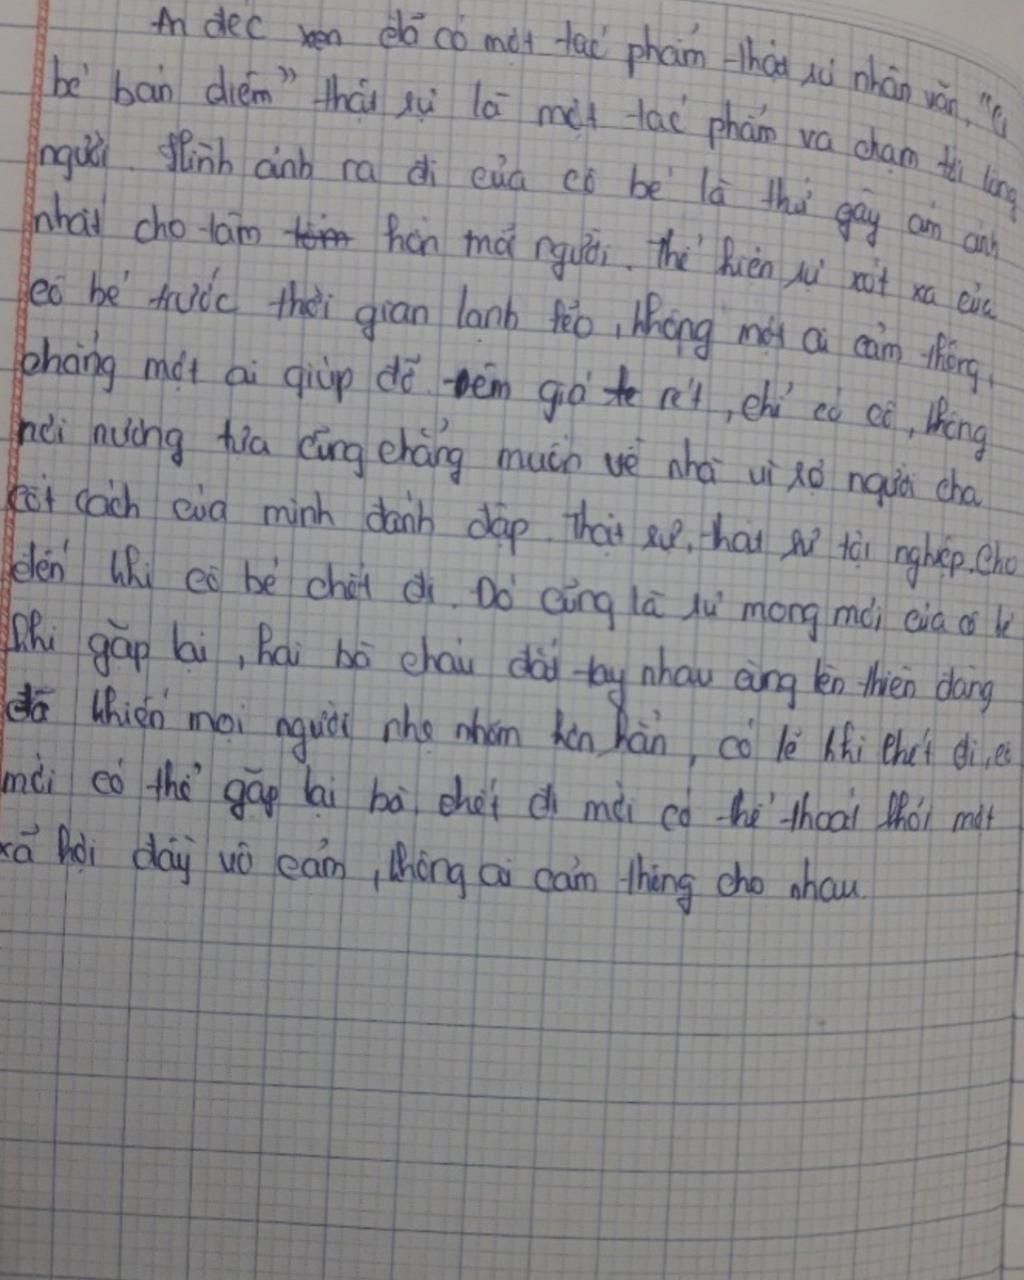 An đéc xen đã có một tác phẩm thật sự nhân văn, "Cô
bé bán diêm" thật sự là một tác phẩm va chạm tới lòng
người. Hình ảnh ra đi của cô bé là thứ gây ám ảnh
nhất cho tâm hồn mỗi người. Thể hiện sự xót xa của
cô bé trước thời gian lạnh lẽo, không một ai cảm thông,
chẳng một ai giúp đỡ đêm gió rét, chỉ có cô, không
nơi nương tựa cũng chẳng muốn về nhà vì sợ người cha
cốt cách của mình đánh đập. Thật sự, thật sự tội nghiệp. Cho
đến khi cô bé chết đi. Đó cũng là sự mong mỏi của cô bé
khi gặp lại, hai bà cháu dắt tay nhau cùng lên thiên đàng
đã khiến mọi người nhẹ nhõm hơn hẳn, có lẽ khi chết đi, cô
mới có thể gặp lại bà, chết đi mới có thể thoát khỏi một
xã hội đầy vô cảm, không ai cảm thông cho nhau.